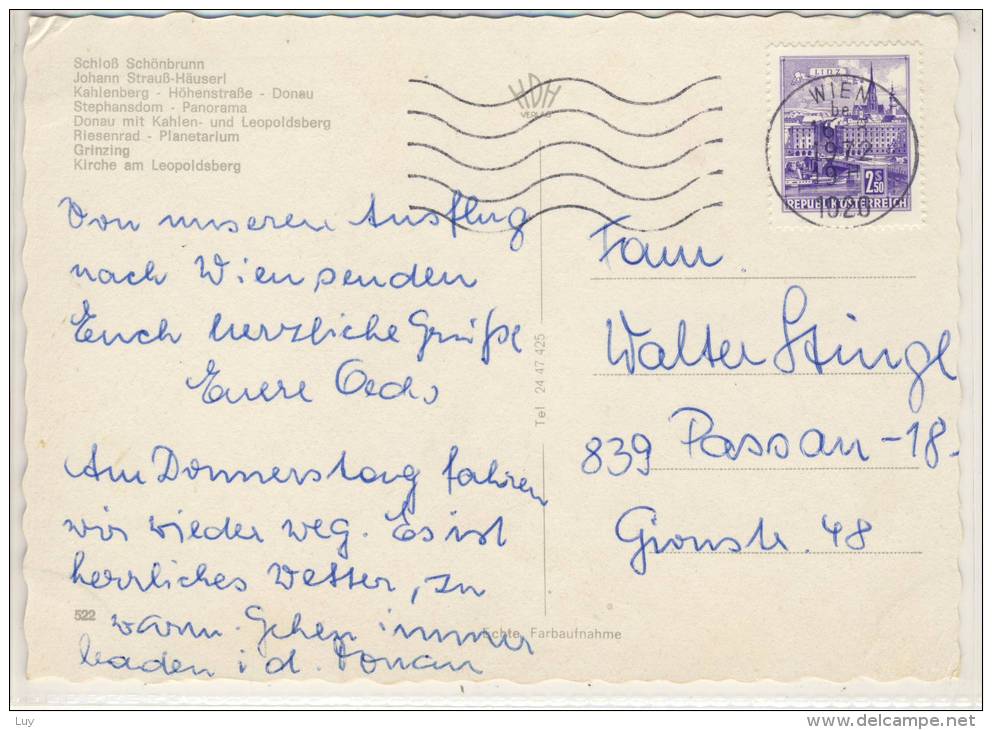 Schloß Schönbrunn
Johann Strauß-Häuserl
Kahlenberg - Höhenstraße - Donau
Stephansdom - Panorama
Donau mit Kahlen- und Leopoldsberg
Riesenrad - Planetarium
Grinzing
Kirche am Leopoldsberg
HDH
VERLAG
LINZ
WIEN
2S50
REPUBLIK ÖSTERREICH
1020
Von unseren Ausflug
nach Wien senden
Euch herzliche Grüße
Euere Oechs
Am Donnerstag fahren
wir wieder weg. Es ist
herrliches Wetter, zu
warm. Gehen immer
baden i d. Donau
522
Tel 24 47 425
Echte Farbaufnahme
Fam.
Walter Stingl
839 Passau-18-
48
Luy
www.delcampe.net